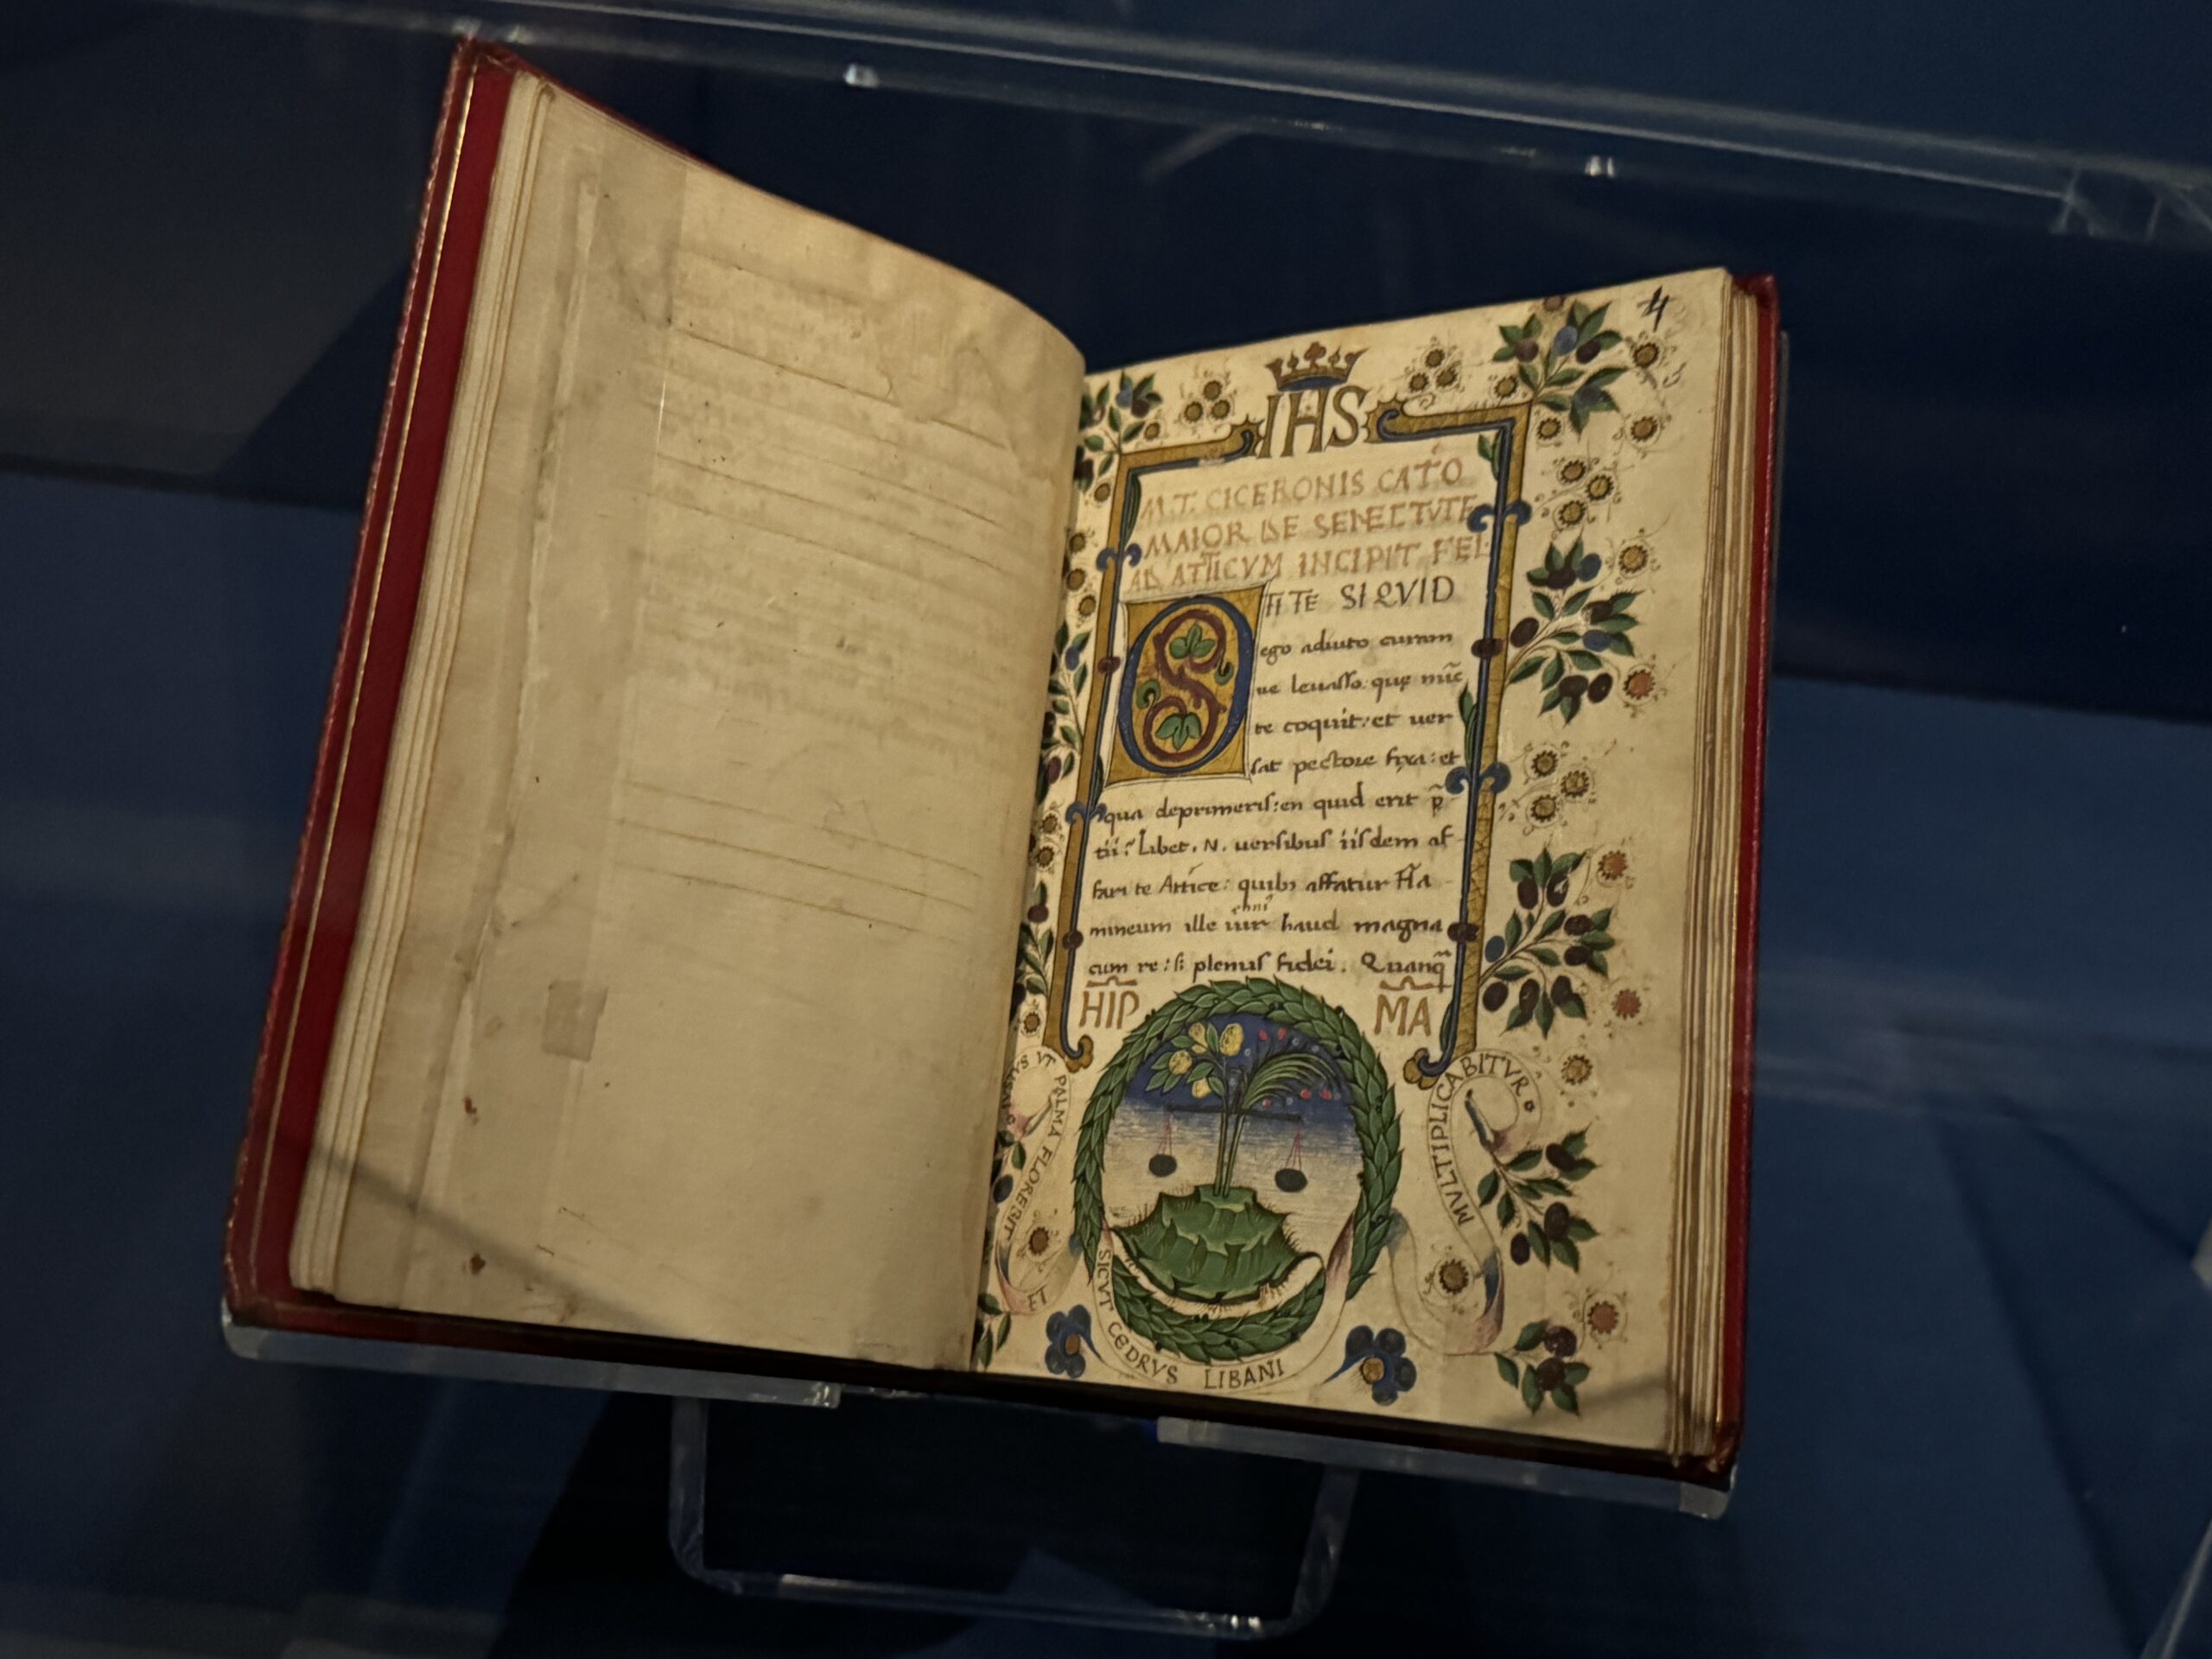 4
IHS
M.T. CICERONIS CATO
MAIOR DE SENECTVTE
AD ATTICVM INCIPIT FEL
O TI TE SI QVID
ego adiuto curam
ue leuasso: que nūc
te coquit: et uer
sat pectore fixa: et
qua deprimeris: en quid erit p̄
tii? Libet. N. uersibus iisdem af
fari te Attice: quibꝫ affatur Fla
mineum ille uir haud magna
cum re: sꝫ plenus fidei. Quanq̄
HIP MA
VT PALMA FLOREBIT
ET
SICVT CEDRVS LIBANI
MVLTIPLICABITVR